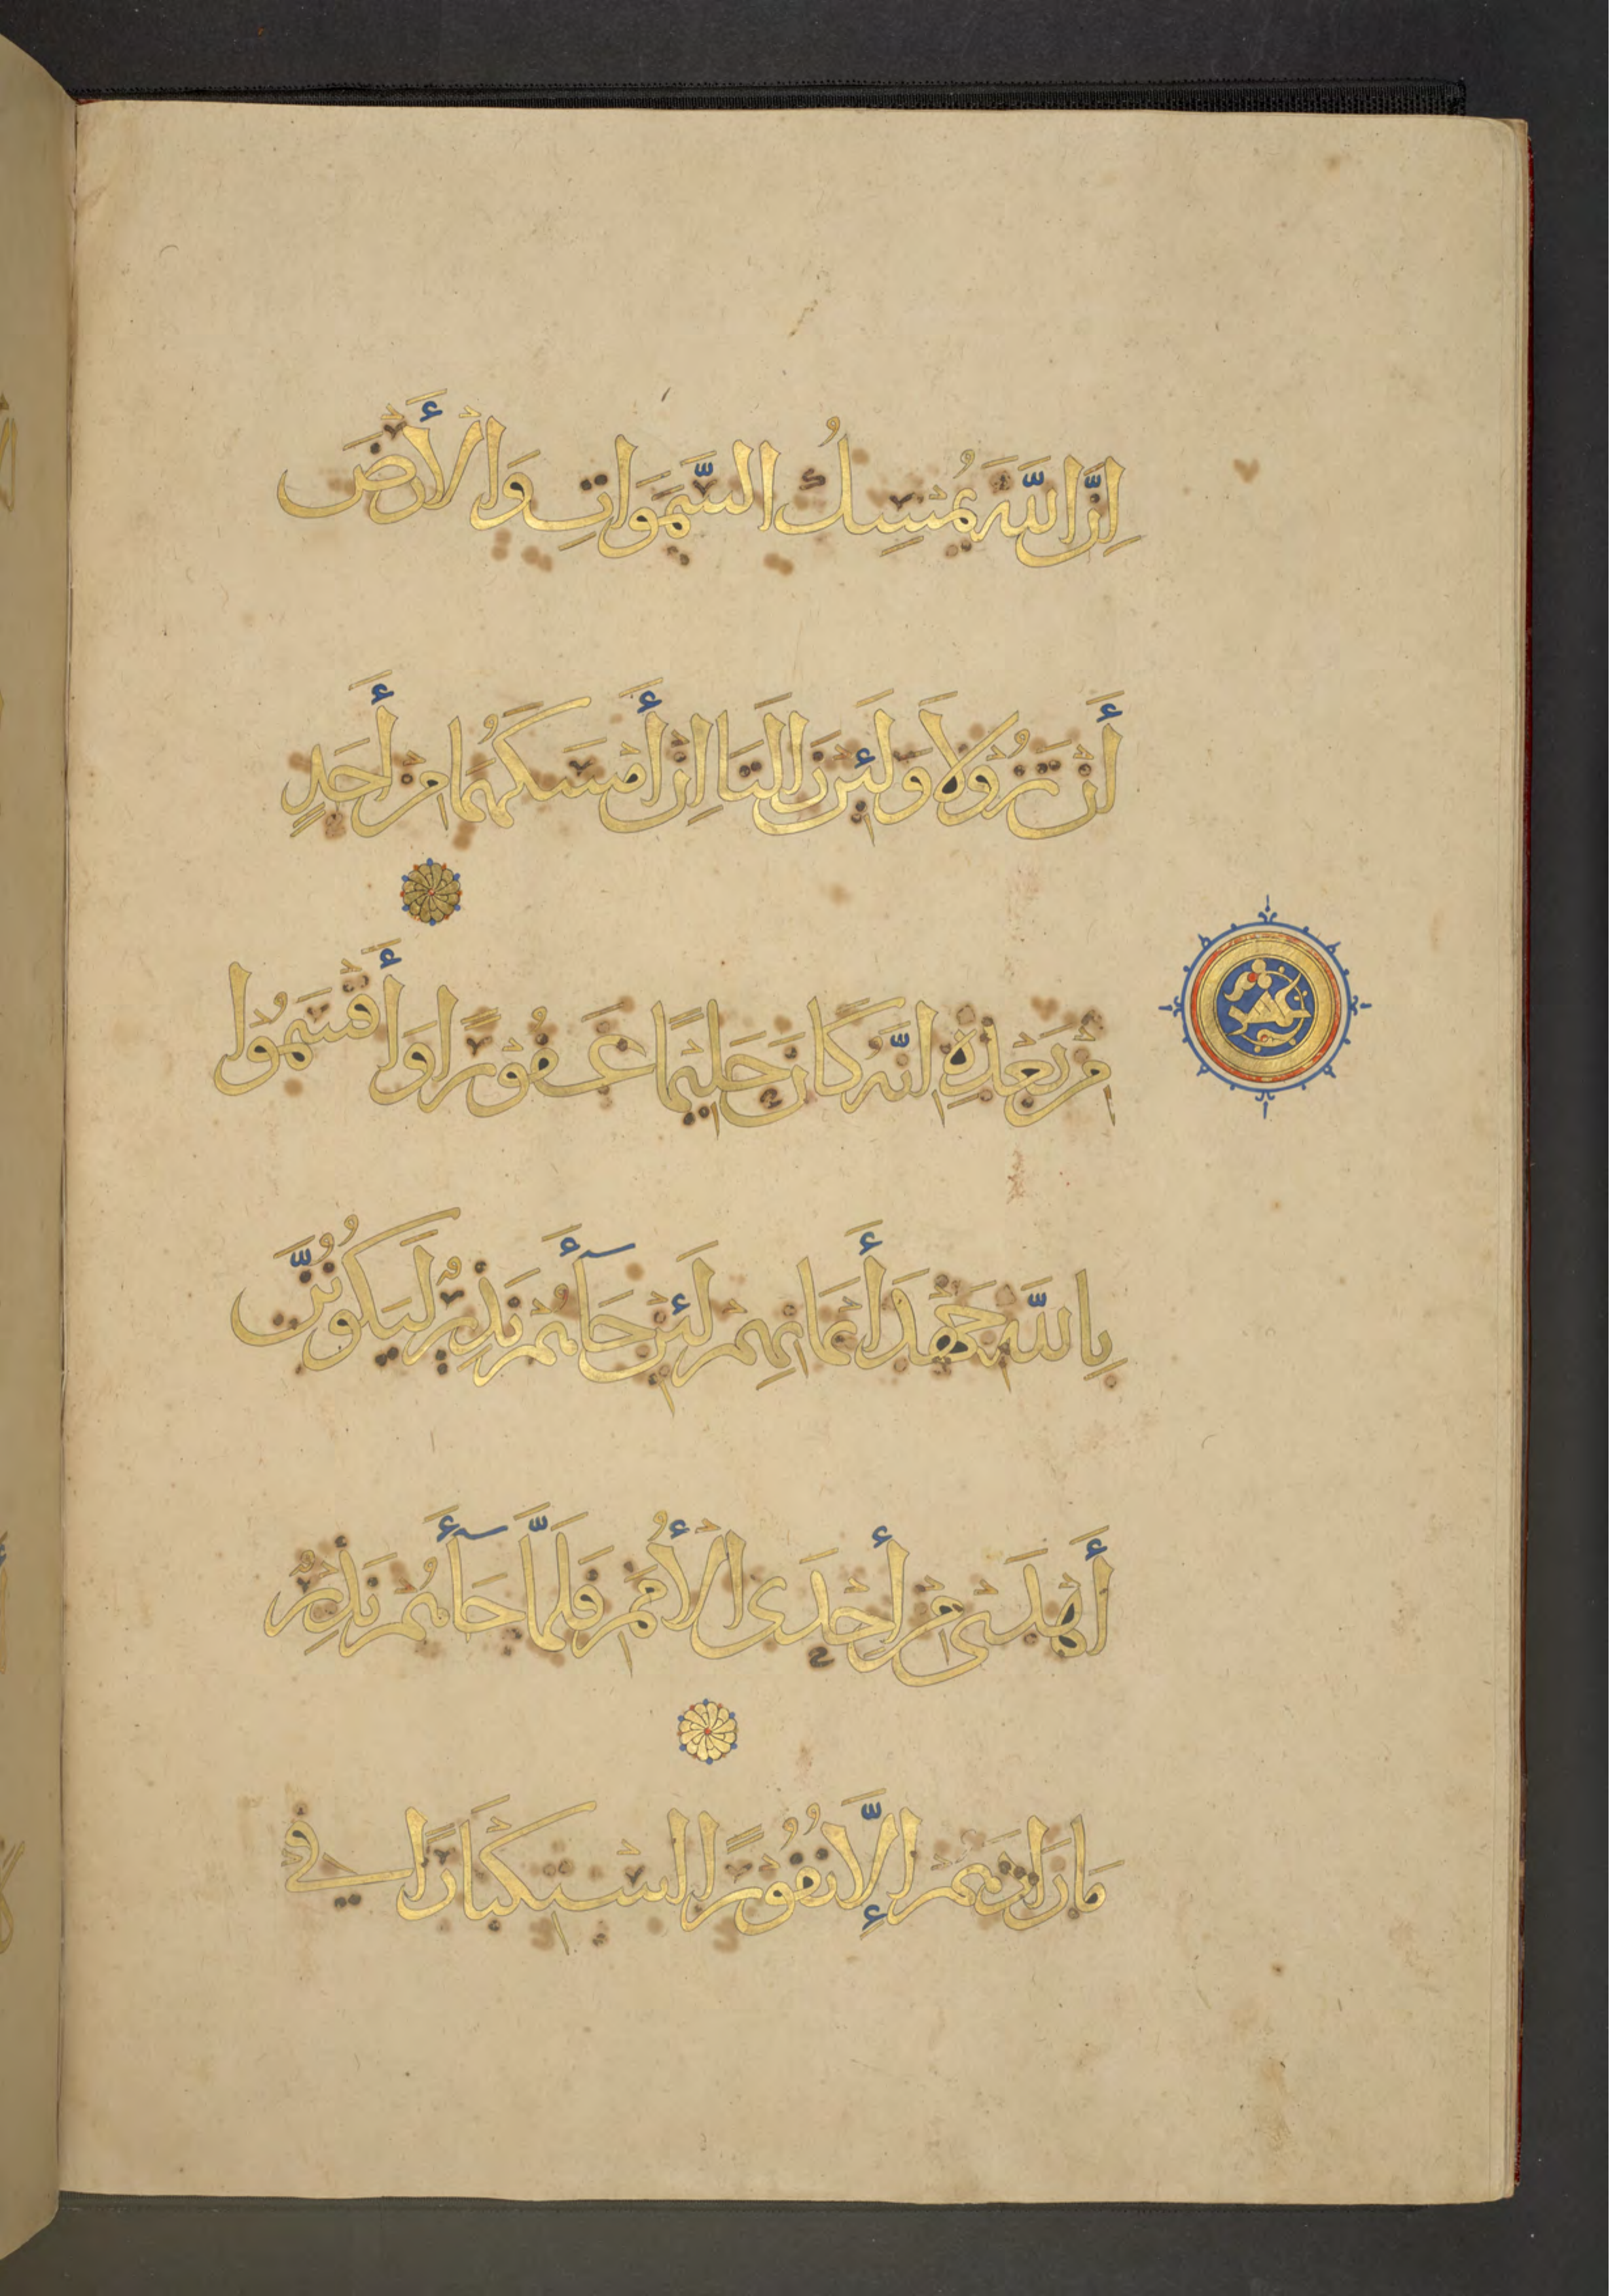 اِنَّ اللَّهَ يُمْسِكُ السَّمَوَاتِ وَالْأَرْضَ
أَنْ تَزُوْلَا وَلَئِنْ زَالَتَا اِنْ أَمْسَكَهُمَا مِنْ أَحَدٍ
مِنْ بَعْدِهِ اِنَّهُ كَانَ حَلِيْمًا غَفُوْرًا وَأَقْسَمُوْا
بِاللَّهِ جَهْدَ أَيْمَانِهِمْ لَئِنْ جَآأَهُمْ نَذِيْرٌ لَيَكُوْنُنَّ
أَهْدَىْ مِنْ أحْدَى الْأُمَمِ فَلَمَّا جَآأَهُمْ نَذِيْرٌ
مَا زَادَهُمْ إِلَّا نُفُوْرًا اسْتِكْبَارًا فِي